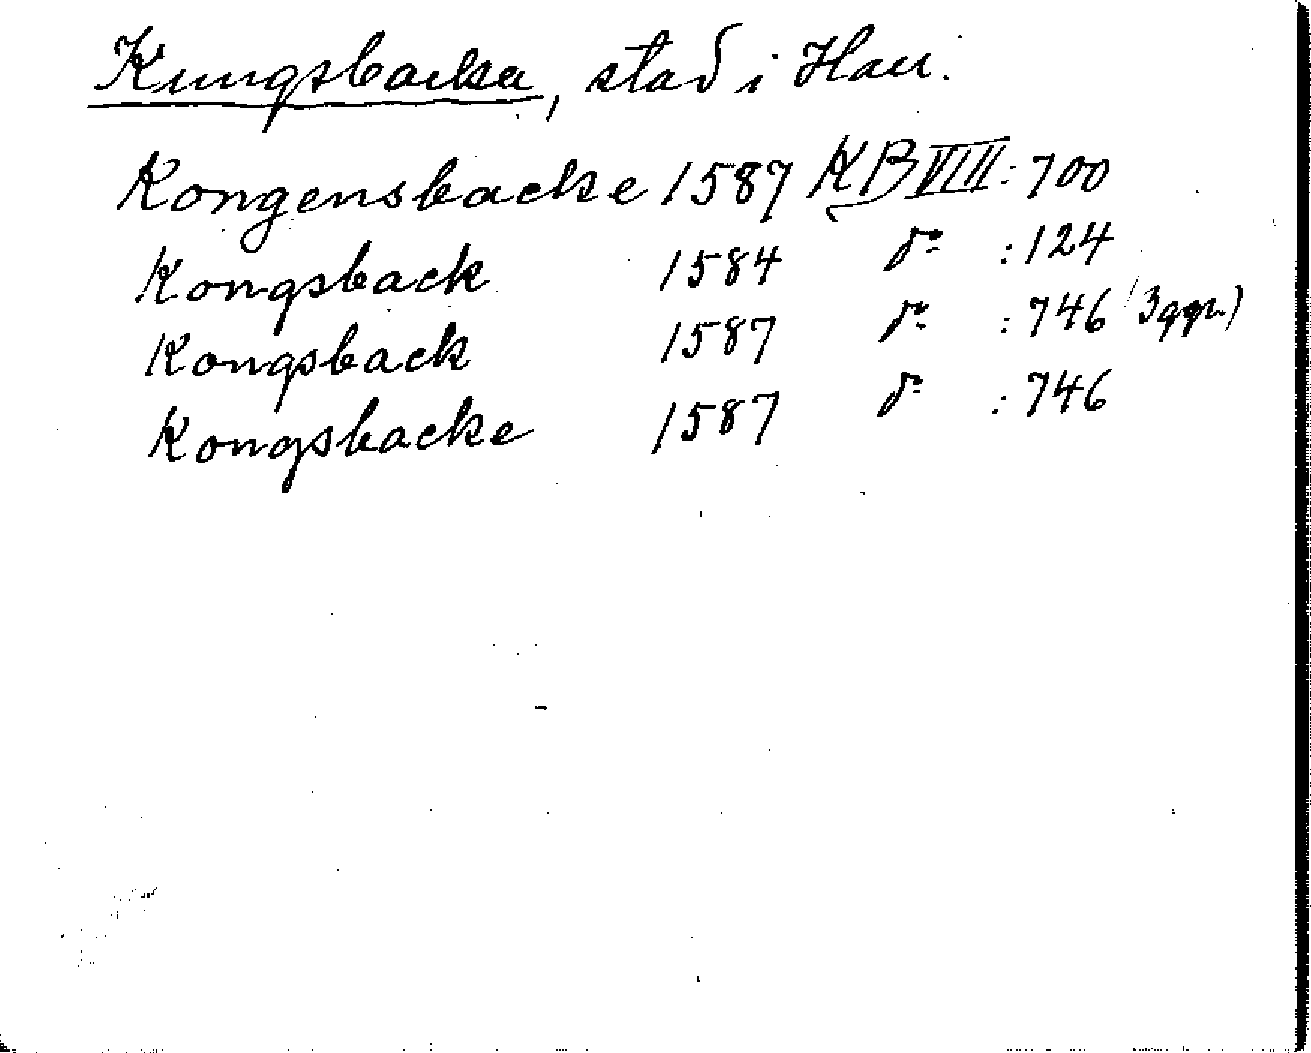 Kungsbacka, stad i Hall.
Kongensbacke 1587 KB VIII: 700
Kongsback 1584 do :124
Kongsback 1587 do :746 (3 ggr.)
Kongsbacke 1587 do :746